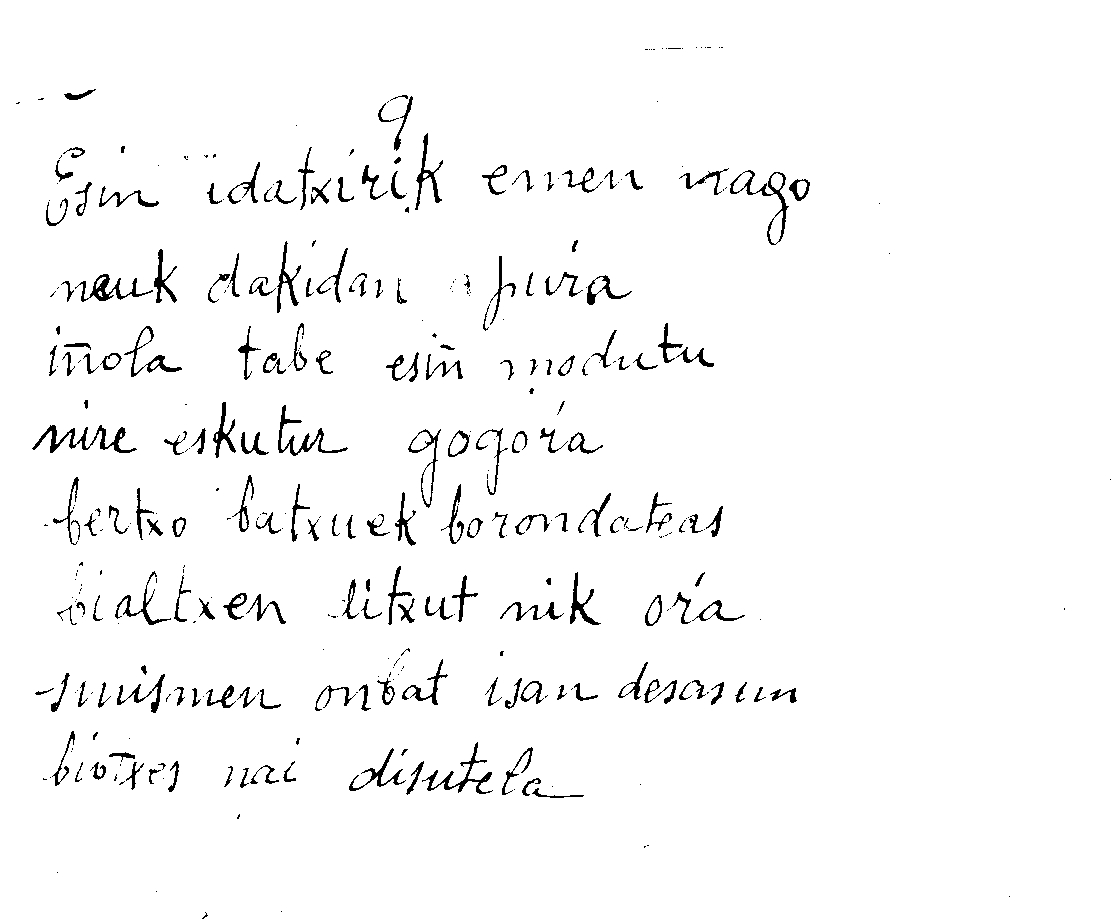 9
Esin idatxirik emen nago
neuk dakidan apuŕa
iñola tabe esiñ modutu
nire eskutur gogoŕa
bertxo batxuek borondateas
bialtxen litxut nik oŕa
smismen onbat isan desasun
biotxes nai disutela